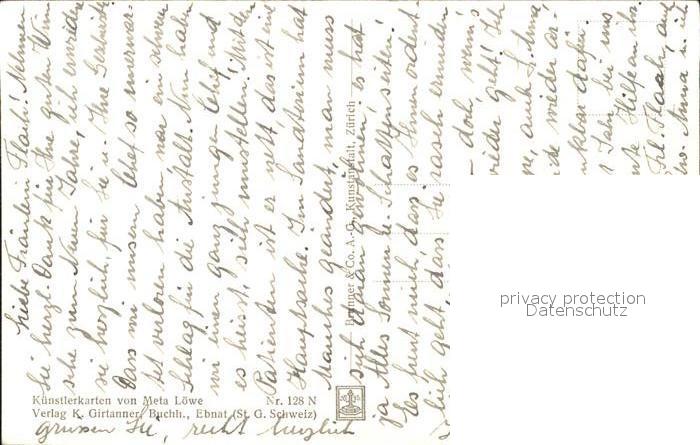 Liebe Fräulein Flach! Nehmen
Sie herzl. Dank für Ihre guten Wün
sche zum Neuen Jahre, ich erwidere
sie herzlich, für Sie u. Ihre Geschwister
Dass wir unsern Chef so unerwar-
tet verloren haben war ein schwerer
Schlag für die Anstalt. Nun haben
wir einen ganz jungen Chef und
es heisst, sich umstellen. Mit den
Patienten ist er nett das ist eine
Hauptsache. Im Sanatorium hat
Manches geändert, man muss
sich daran gewöhnen; es hat
ja Alles Sonnen u. Schattenseiten!
Es freut mich, dass es Ihnen ordent-
lich geht, dass Sie rasch ermüden
doch, wenn's
wieder geht! Ich
auch
wieder ar-
dankbar dafür.
bei uns
Hilfe an ihr.
Frl. Flaach, auch
Anna
grüssen Sie, recht herzlich
Brunner & Co. A.-G., Kunstanstalt, Zürich
Künstlerkarten von Meta Löwe Nr. 128 N
Verlag K. Girtanner, Buchh., Ebnat (St. G. Schweiz)
privacy protection
Datenschutz